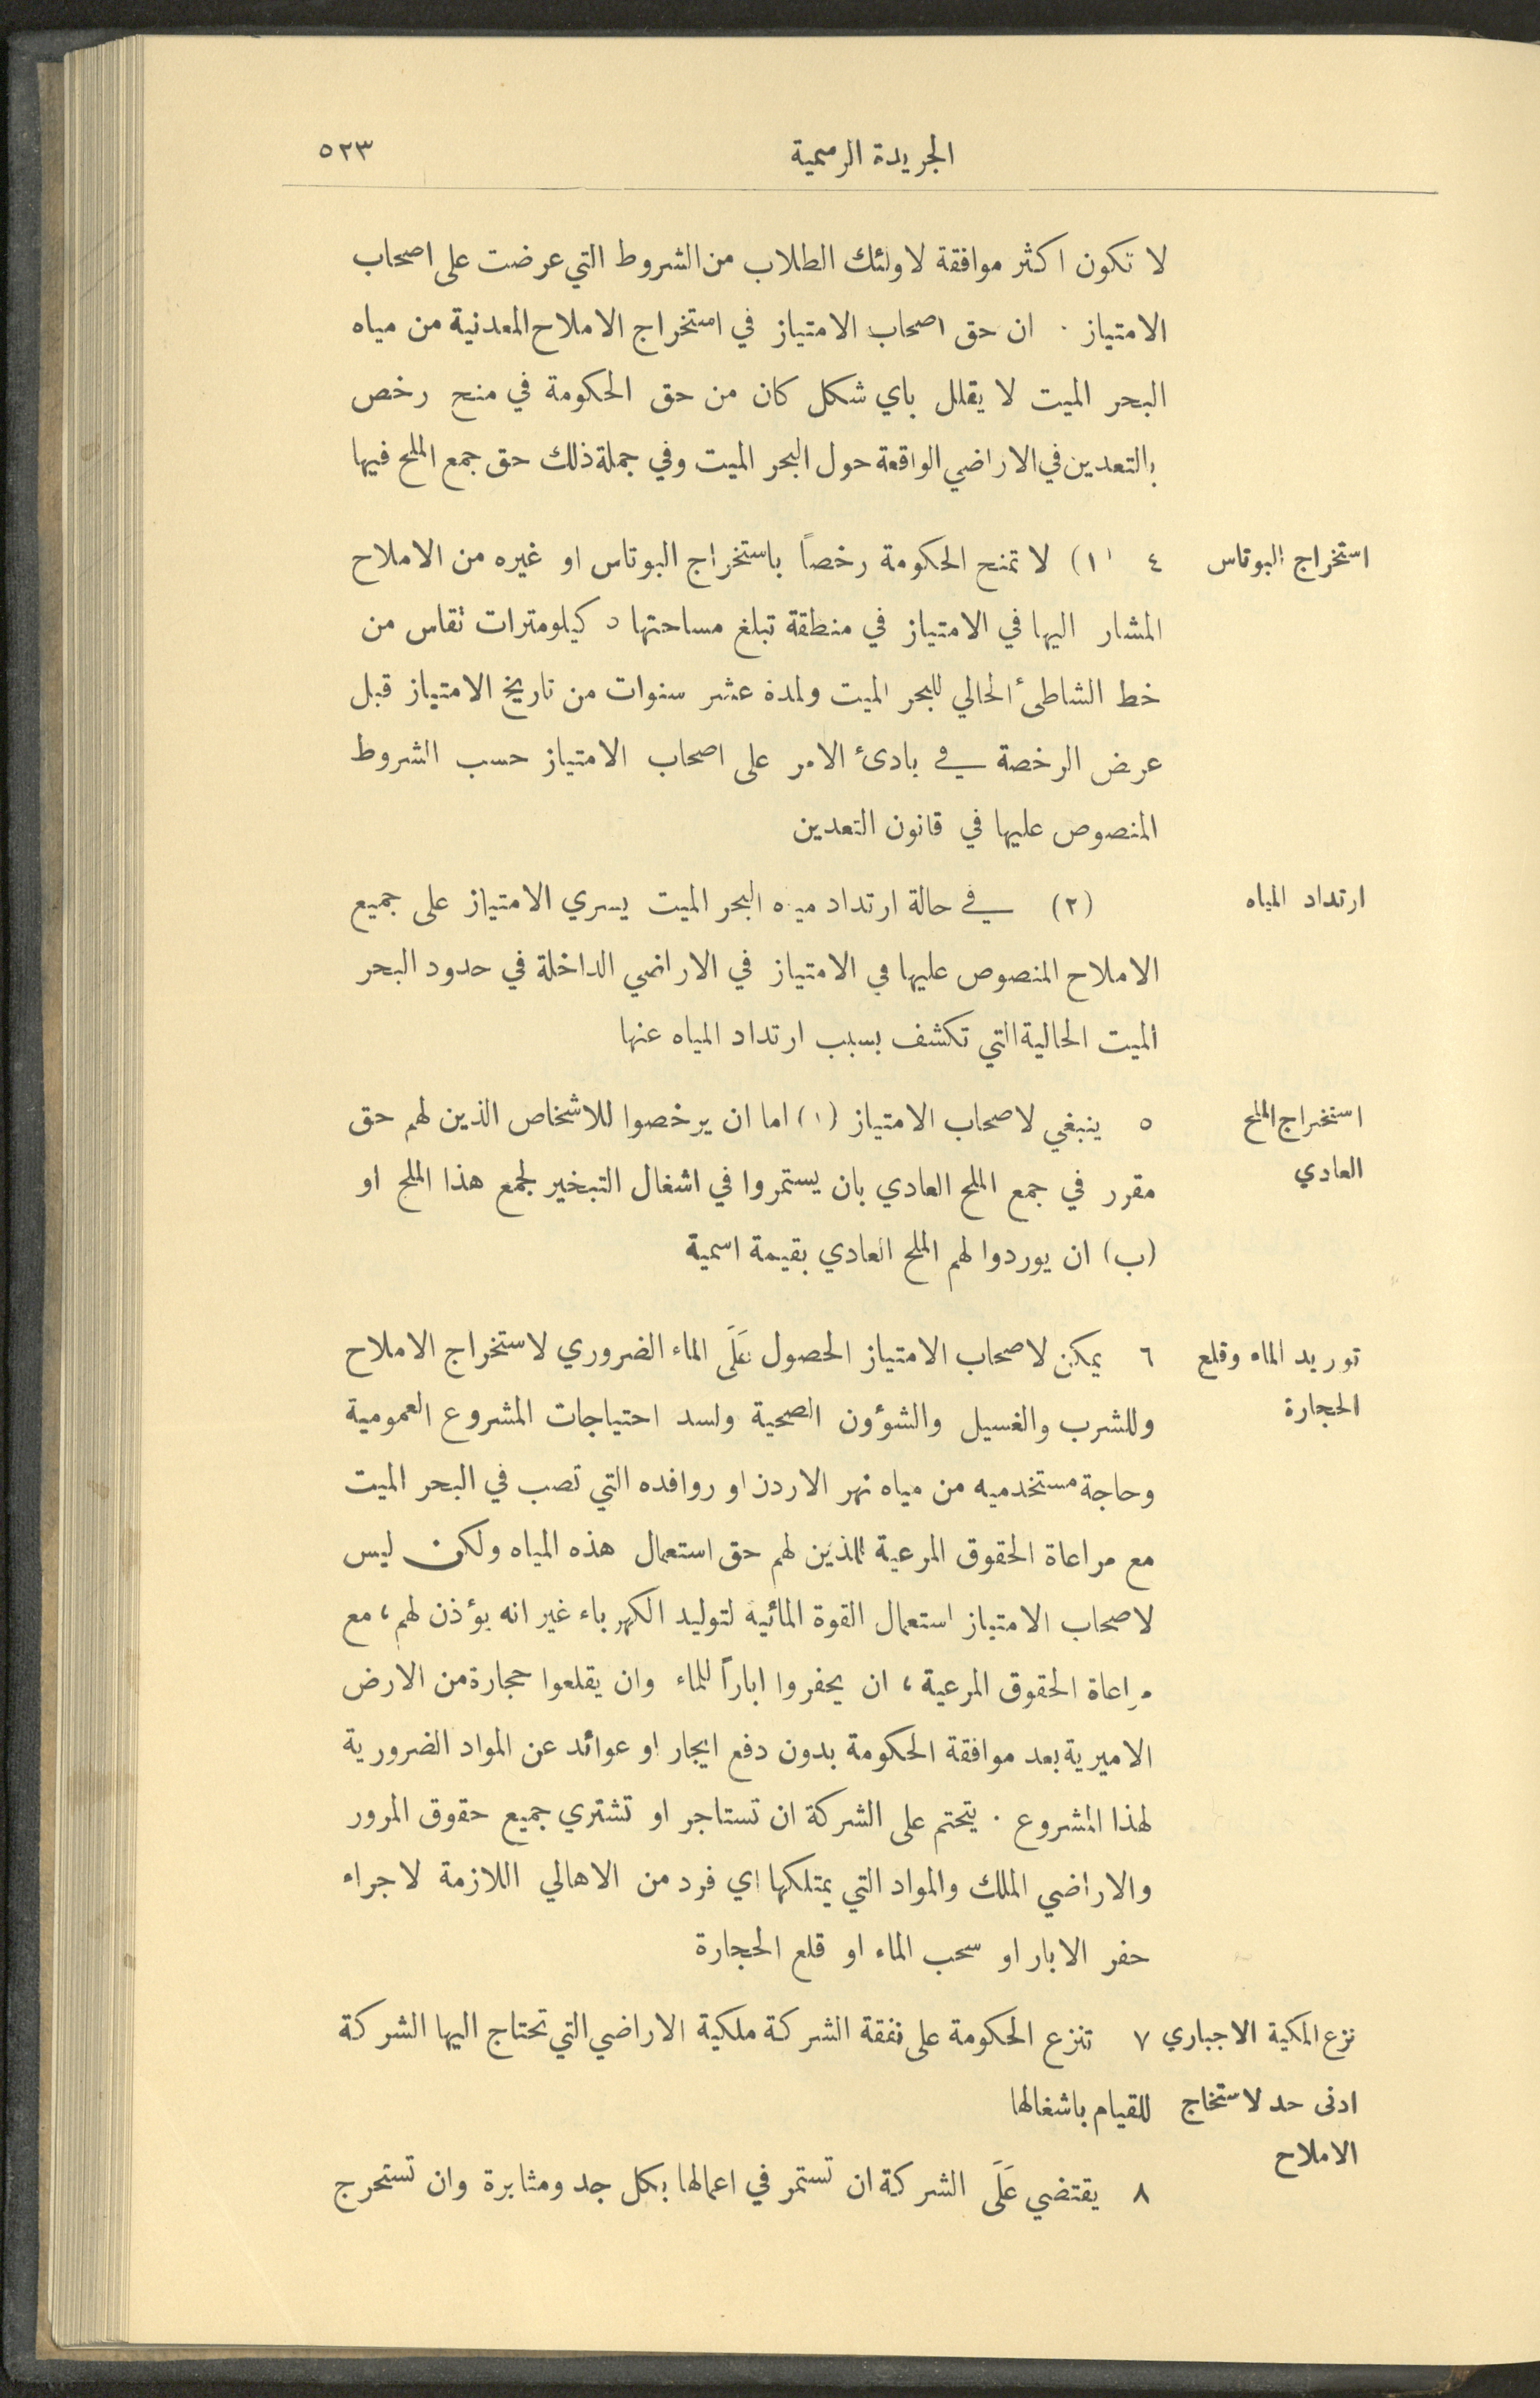 الجريدة الرسمية ٥٢٣
لا تكون اكثر موافقة لاولئك الطلاب من الشروط التي عرضت على اصحاب
الامتياز . ان حق اصحاب الامتياز في استخراج الاملاح المعدنية من مياه
البحر الميت لا يقلل باي شكل كان من حق الحكومة في منح رخص
بالتعدين في الاراضي الواقعة حول البحر الميت وفي جملة ذلك حق جمع الملح فيها
استخراج البوتاس ٤ (١) لا تمنح الحكومة رخصاً باستخراج البوتاس او غيره من الاملاح
المشار اليها في الامتياز في منطقة تبلغ مساحتها ٥ كيلومترات تقاس من
خط الشاطئ الحالي للبحر الميت ولمدة عشر سنوات من تاريخ الامتياز قبل
عرض الرخصة في بادئ الامر على اصحاب الامتياز حسب الشروط
المنصوص عليها في قانون التعدين
ارتداد المياه (٢) في حالة ارتداد مياه البحر الميت يسري الامتياز على جميع
الاملاح المنصوص عليها في الامتياز في الاراضي الداخلة في حدود البحر
الميت الحالية التي تكشف بسبب ارتداد المياه عنها
استخراج الملح ٥ ينبغي لاصحاب الامتياز (١) اما ان يرخصوا للاشخاص الذين لهم حق
العادي مقرر في جمع الملح العادي بان يستمروا في اشغال التبخير لجمع هذا الملح او
(ب) ان يوردوا لهم الملح العادي بقيمة اسمية
توريد الماء وقلع ٦ يمكن لاصحاب الامتياز الحصول عَلَى الماء الضروري لاستخراج الاملاح
الحجارة وللشرب والغسيل والشؤون الصحية ولسد احتياجات المشروع العمومية
وحاجة مستخدميه من مياه نهر الاردن او روافده التي تصب في البحر الميت
مع مراعاة الحقوق المرعية للذين لهم حق استعمال هذه المياه ولكن ليس
لاصحاب الامتياز استعمال القوة المائية لتوليد الكهرباء غير انه يؤذن لهم ، مع
مراعاة الحقوق المرعية ، ان يحفروا اباراً للماء وان يقلعوا حجارة من الارض
الاميرية بعد موافقة الحكومة بدون دفع ايجار او عوائد عن المواد الضرورية
لهذا المشروع . يتحتم على الشركة ان تستاجر او تشتري جميع حقوق المرور
والاراضي الملك والمواد التي يمتلكها اي فرد من الاهالي اللازمة لاجراء
حفر الابار او سحب الماء او قلع الحجارة
نزع المكية الاجباري ٧ تنزع الحكومة على نفقة الشركة ملكية الاراضي التي تحتاج اليها الشركة
ادنى حد لاستخاج للقيام باشغالها
الاملاح
٨ يقتضي عَلَى الشركة ان تستمر في اعمالها بكل جد ومثابرة وان تستحرج